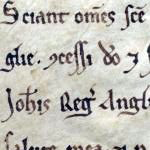 Sciant om̅es s̅ce
gl̅ie. ꝯcessi do ⁊
Joh̅is Reg̅ Angl